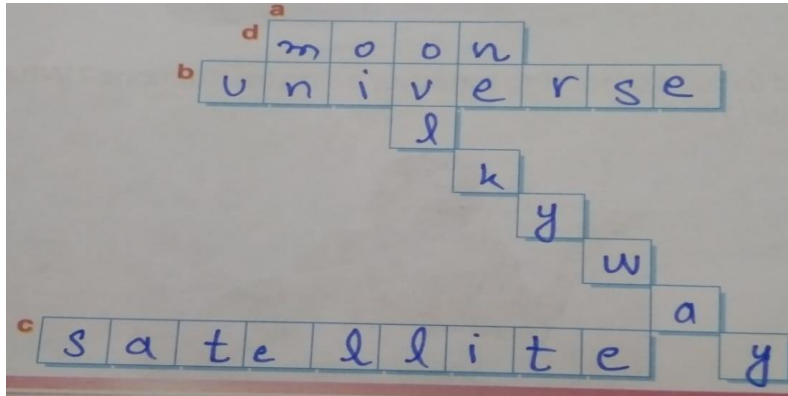 a
d moon
b universe
l
k
y
w
a
c satellite y